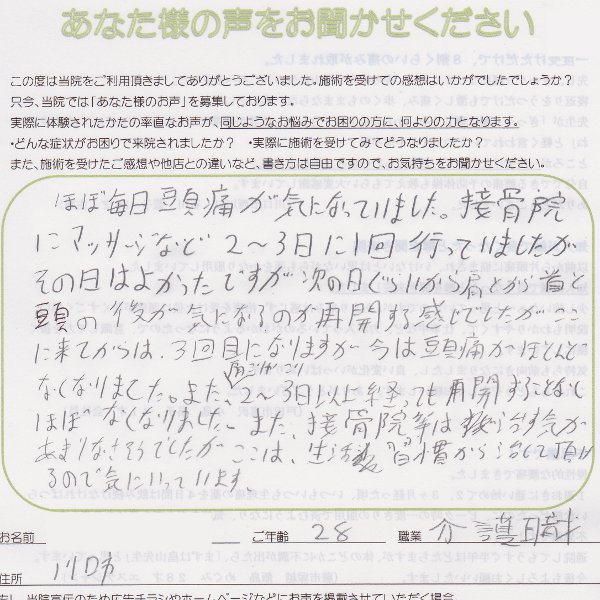 あなた様の声をお聞かせください
この度は当院をご利用頂きましてありがとうございました。施術を受けての感想はいかがでしたでしょうか？
只今、当院では「あなた様のお声」を募集しております。
実際に体験されたかたの率直なお声が、同じようなお悩みでお困りの方に、何よりの力となります。
・どんな症状がお困りで来院されましたか？　・実際に施術を受けてみてどうなりましたか？
また、施術を受けたご感想や他店との違いなど、書き方は自由ですので、お気持ちをお聞かせください。
ほぼ毎日頭痛が気になっていました。接骨院
にマッサージなど2〜3日に1回行っていましたが
その日はよかったですが次の日ぐらいから肩とか首と
頭の後が気になるのが再開する感じでしたがここ
に来てからは、3回目になりますが今は頭痛がほとんど
なくなりました。また、2〜3日以上経っても再開することなく
ほぼなくなりました。また、接骨院等は治す気が
あまりなさそうでしたがここは、生活習慣から治して頂け
るので気にいっています
お名前
ご年齢 28 職業 介護職
住所 川口市